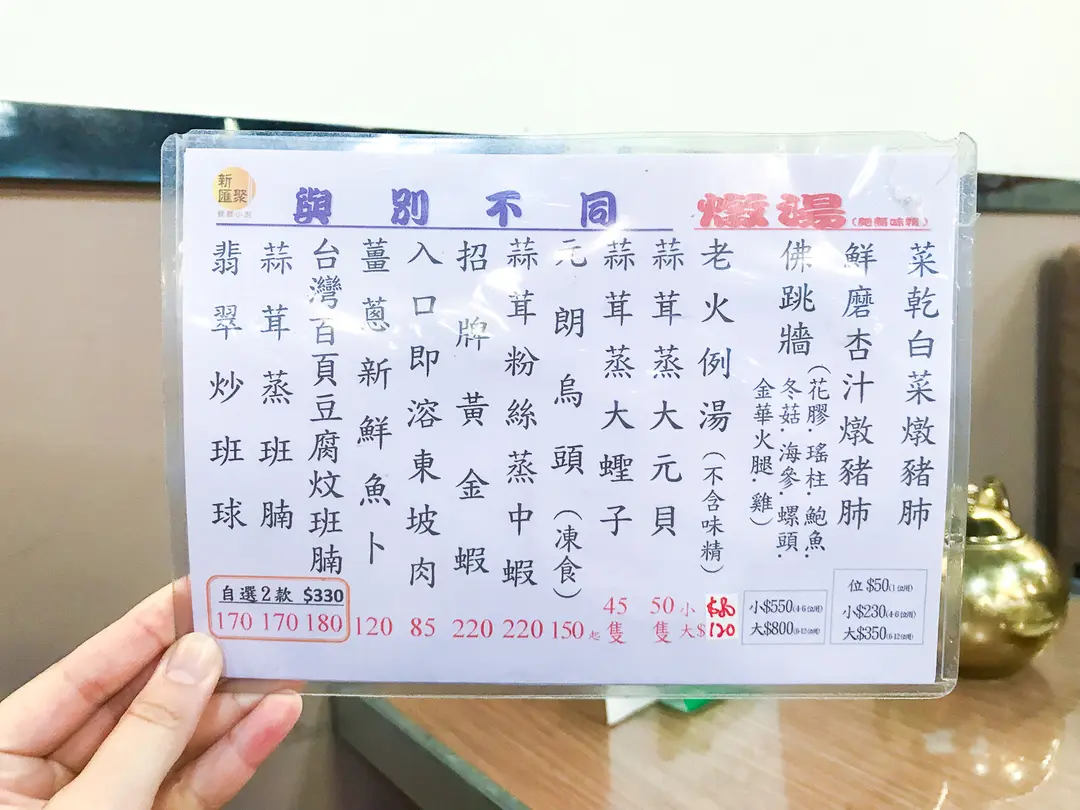 新
匯聚
與別不同
燉湯
菜乾白菜燉豬肺
鮮磨杏汁燉豬肺
位$50(1位用)
小$230(4-6位用)
大$350(8-12位用)
佛跳牆
(花膠·瑤柱·鮑魚·
冬菇·海參·螺頭·
金華火腿·雞)
小$550(4-6位用)
大$800(8-12位用)
老火例湯(不含味精)
小
大$120
蒜茸蒸大元貝
50
隻
蒜茸蒸大蟶子
45
隻
元朗烏頭(凍食)
150起
蒜茸粉絲蒸中蝦
220
招牌黃金蝦
220
入口即溶東坡肉
85
薑蔥新鮮魚卜
120
台灣百頁豆腐炆班腩
180
蒜茸蒸班腩
170
翡翠炒班球
170
自選2款 $330